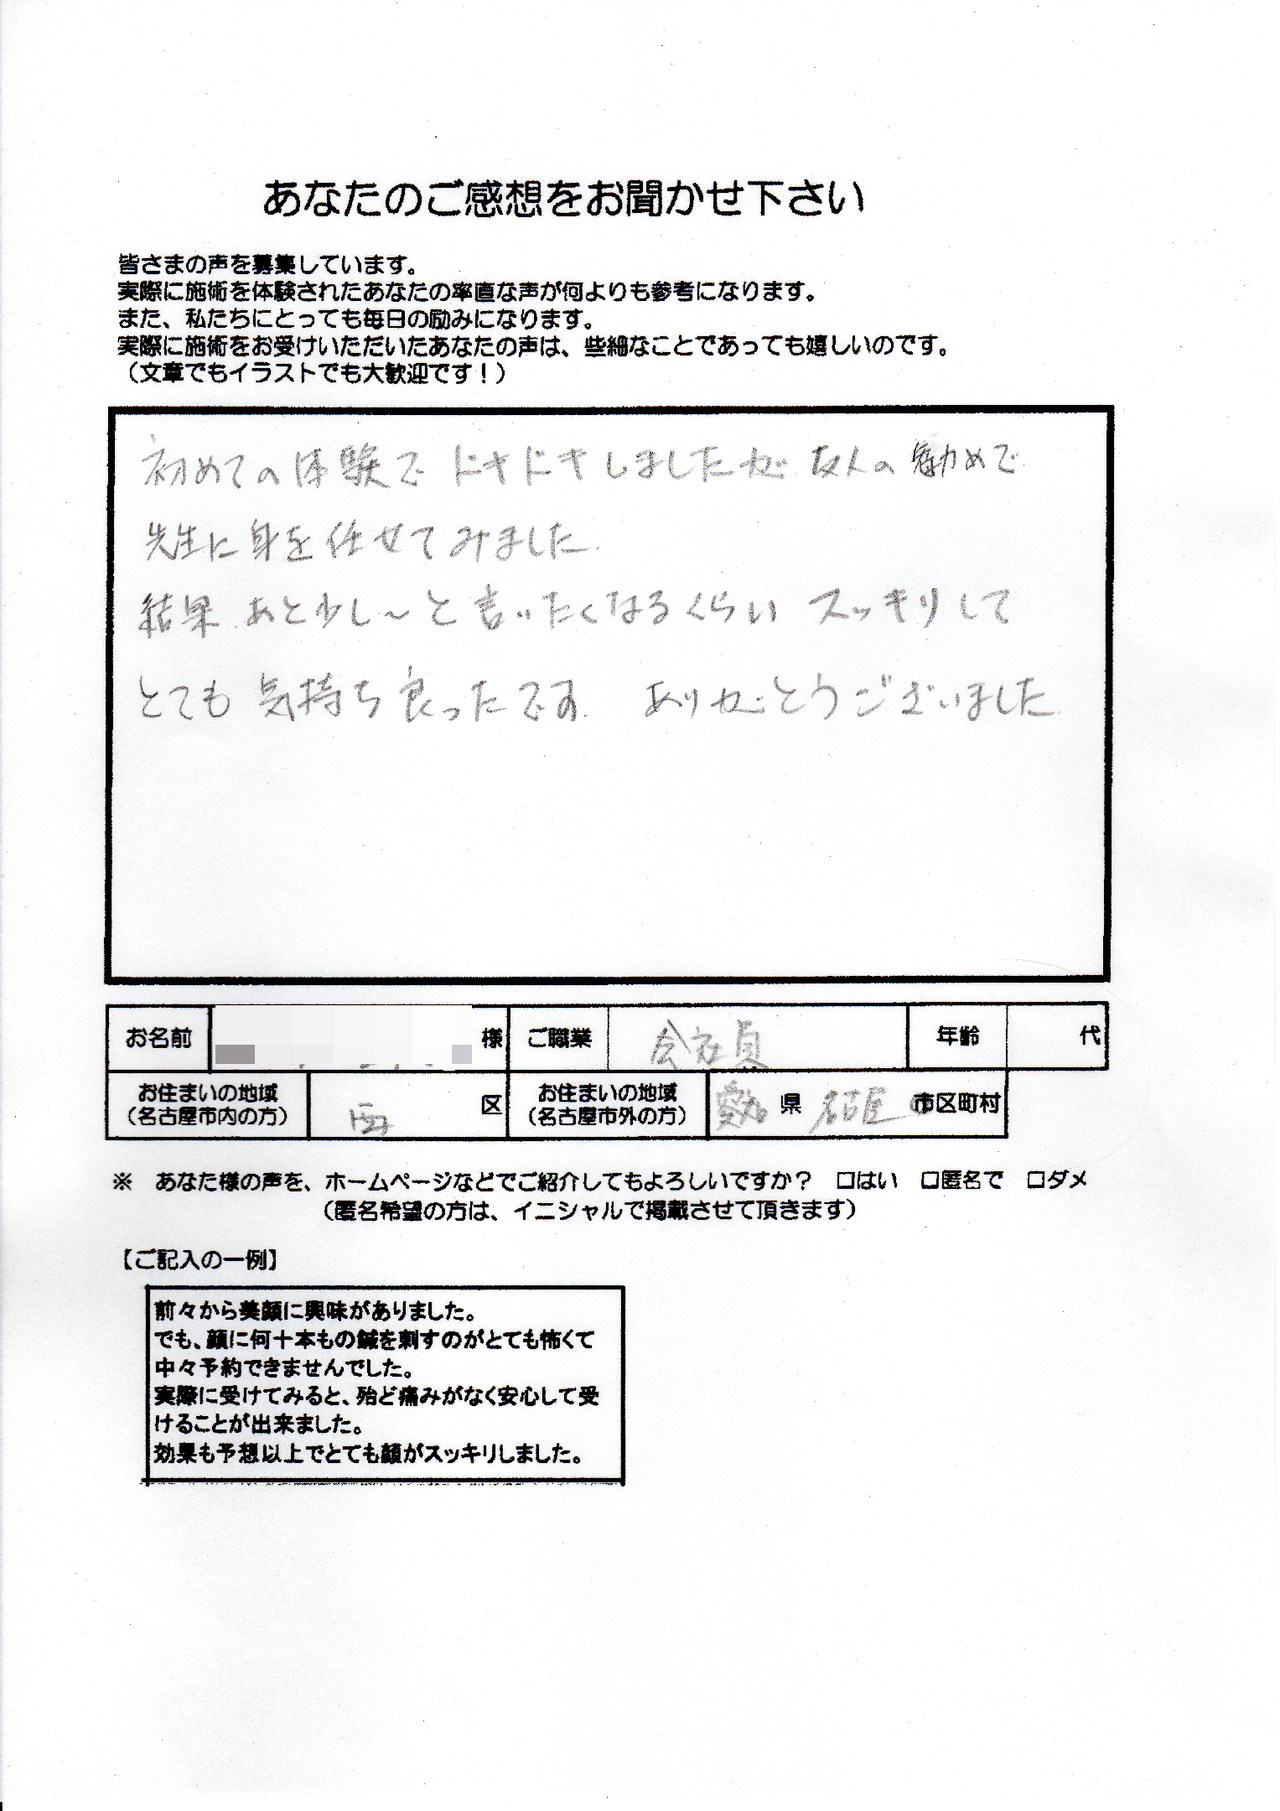 あなたのご感想をお聞かせ下さい
皆さまの声を募集しています。
実際に施術を体験されたあなたの率直な声が何よりも参考になります。
また、私たちにとっても毎日の励みになります。
実際に施術をお受けいただいたあなたの声は、些細なことであっても嬉しいのです。
（文章でもイラストでも大歓迎です！）
初めての体験で ドキドキしましたが 友人の勧めで
先生に身を任せてみました.
結果 あと少し〜と言いたくなるくらい スッキリして
とても 気持ち良ったです. ありがとうございました.
お名前 様 ご職業 会社員 年齢 代
お住まいの地域 お住まいの地域
（名古屋市内の方） 西 区 （名古屋市外の方） 愛知 県 名古屋 市区町村
※ あなた様の声を、ホームページなどでご紹介してもよろしいですか？ □はい □匿名で □ダメ
（匿名希望の方は、イニシャルで掲載させて頂きます）
【ご記入の一例】
前々から美顔に興味がありました。
でも、顔に何十本もの鍼を刺すのがとても怖くて
中々予約できませんでした。
実際に受けてみると、殆ど痛みがなく安心して受
けることが出来ました。
効果も予想以上でとても顔がスッキリしました。